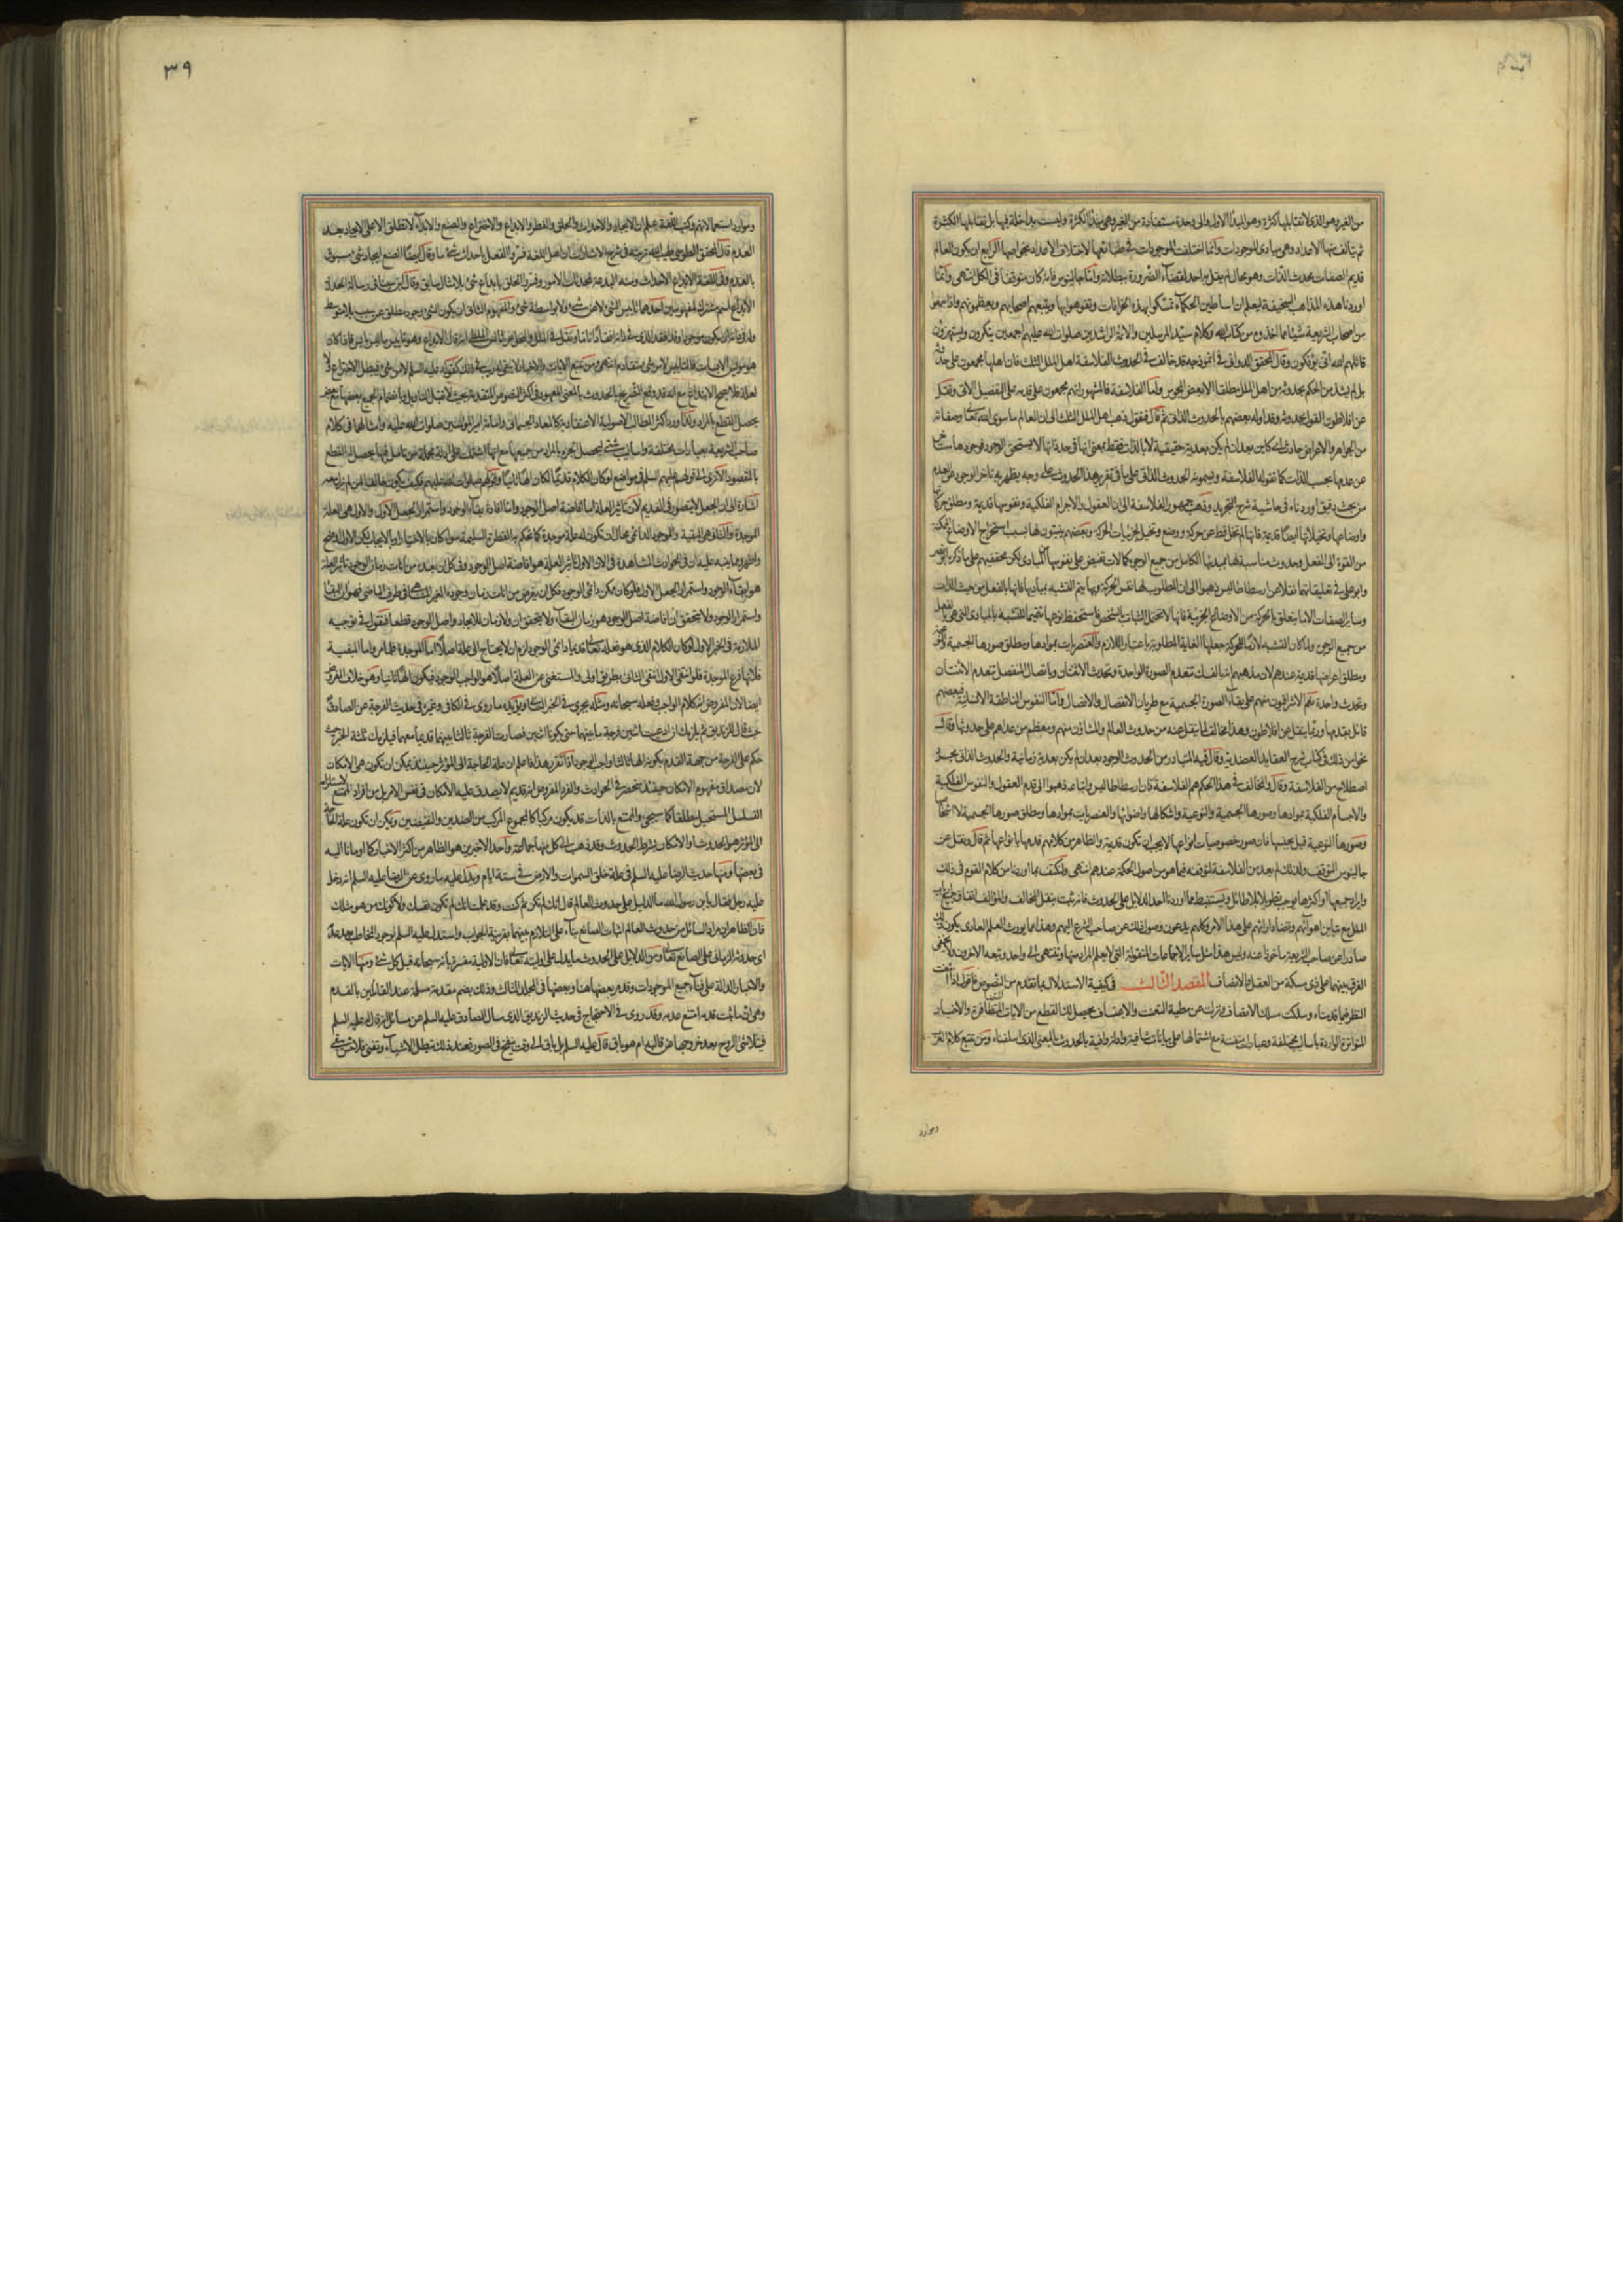 من الغير وهو الذي لا تقابلها كثرة وهو المبدأ الأول والى وحدة مستفادة من الغير وهى مبدأ الكثرة وليست بداخلة فيها بل تقابلها الكثرة
ثم يتألف منها الاعداد وهى مبادى الموجودات وانما اختلفت الموجودات في طبائعها لاختلاف الاعداد بخواصها الرابع ان يكون العالم
قديم الصفات محدث الذات وهو محال لم يقل به احد لقضاء الضرورة ببطلانه واما جالينوس فانه كان متوقفا فى الكل انتهى وانما
اوردنا هذه المذاهب السخيفة ليعلم ان اساطين الحكماء تمسكوا بهذه الخرافات وتفوهوا بها ويتبعهم اصحابهم ويعظمونهم واذا سمعوا
من اصحاب الشريعة شيئا مما اخذوه من كتاب الله وكلام سيد المرسلين والائمة الراشدين صلوات الله عليهم اجمعين ينكرون ويستهزؤن
قاتلهم الله انى يؤفكون وقال المحقق الدواني في انموذجه قد خالف في الحدوث الفلاسفة اهل الملل الثلث فان اهلها مجمعون على حدوثه
بل لم يشذ من الحكم بحدوثه من اهل الملل مطلقا الا بعض المجوس واما الفلاسفة فالمشهور انهم مجمعون على قدمه على التفصيل الاتى ونقل
عن افلاطون القول بحدوثه وقد اوله بعضهم بالحدوث الذاتى ثم قال فنقول ذهب اهل الملل الثلث الى ان العالم ما سوى الله تعالى وصفاته
من الجواهر والاعراض حادث اى كائن بعد ان لم يكن بعدية حقيقية لا بالذات فقط بمعنى انها فى حد ذاتها لا يستحق الوجود فوجودها متاخر
عن عدمها بحسب الذات كما تقوله الفلاسفة ويسمونه الحدوث الذاتى على ما فى تقرير هذا الحدوث على وجه يظهر به تاخر الوجود عن العدم
من بحث دقيق اوردناه فى حاشية شرح التجريد وذهب جمهور الفلاسفة الى ان العقول والاجرام الفلكية ونفوسها قديمة ومطلق حركاتها
واوضاعها وتخيلاتها ايضا قديمة فانها لم تخل قط عن حركة ووضع وتخيل لجزئيات الحركة وبعضهم يثبتون لها بسبب استخراج الاوضاع الممكنة
من القوة الى الفعل وحدوث مناسبة لها بمبدئها الكامل من جميع الوجوه كمالات تفيض على نفوسها من المبادى لكن محققيهم على ما ذكره ابو نصر
وابو على فى تعليقاتهما نقلا عن ارسطاطاليس ذهبوا الى ان المطلوب لها نفس الحركة وبها يتم التشبه بمباديها فانها بالفعل من حيث الذات
وسائر الصفات الا ما يتعلق بالحركة من الاوضاع الجزئية فانها لا تحتمل الثبات بالشخص فاستحفظ نوعها تتميما للتشبه بالمبادى التى هى بالفعل
من جميع الوجوه ولما كان التشبه لازما للحركة جعلها الغاية المطلوبة باعتبار اللازم والعنصريات بموادها ومطلق صورها الجسمية والنوعية
ومطلق اعراضها قديمة عندهم لان مذهبهم انه بالفك تنعدم الصورة الواحدة وتحدث الاثنتان وباتصال المنفصل تنعدم الاثنتان
وتحدث واحدة نعم الاشراقيون منهم على بقاء الصورة الجسمية مع طريان الانفصال والاتصال واما النفوس الناطقة الانسانية فبعضهم
قائل بقدمها وربما ينقل عن افلاطون وهذا يخالف لما ينقل عنه من حدوث العالم والمشاؤن منهم ومعظم من عداهم على حدوثها وقال
نحوا من ذلك فى كتاب شرح العقايد العضدية وقال فيه المتبادر من الحدوث الوجود بعد ان لم يكن بعدية زمانية والحدوث الذاتى مجرد
اصطلاح من الفلاسفة وقال والمخالف فى هذا الحكم هم الفلاسفة فان ارسطاطاليس واتباعه ذهبوا الى قدم العقول والنفوس الفلكية
والاجسام الفلكية بموادها وصورها الجسمية والنوعية واشكالها واضوائها والعنصريات بموادها ومطلق صورها الجسمية لا اشخاصها
وصورها النوعية قيل بجنسها فان صور خصوصيات انواعها لا يجب ان تكون قديمة والظاهر من كلامهم قدمها بانواعها ثم قال ونقل عن
جالينوس التوقف ولذلك لم يعد من الفلاسفة لتوقفه فيما هو من اصول الحكمة عندهم انتهى ولنكتف بما اوردنا من كلام القوم فى ذلك
وايراد جميعها او اكثرها يوجب تطويلا بلا طائل ويستنبط مما اوردنا احد الدلايل على الحدوث فانه ثبت بنقل المخالف والمؤالف اتفاق جميع ارباب
الملل مع تباين اهوائهم وتضاد ارائهم على هذا الامر وكلهم يدعون وصول ذلك عن صاحب الشرع اليهم وهذا مما يورث العلم العادى بكون ذلك
صادرا عن صاحب الشريعة ماخوذا عنه وليس هذا مثل سائر الاجماعات المنقولة التى لا يعلم المراد منها وتنتهى الى واحد وتبعه الاخرون ولا يخفى
الفرق بينهما على ذى مسكة من العقل والانصاف المقصد الثالث فى كيفية الاستدلال بما تقدم من النصوص فاقول اذا امعنت
النظر فيما قدمناه وسلكت مسلك الانصاف ونزلت عن مطية التعنت والاعتساف يحصل لك القطع من الايات المتظافرة والاخبار
المتواترة الواردة باساليب مختلفة وعبارات متفننة مع اشتمالها على بيانات شافية وادلة وافية بالحدوث بالمعنى الذى اسلفناه ومن تتبع كلام العرب
وموارد
٣٩
وموارد استعمالاتهم وكتب اللغة يعلم ان الايجاد والاحداث والخلق والفطر والابداع والاختراع والصنع والابداء لا تطلق الا على الايجاد بعد
العدم قال المحقق الطوسى طيب الله تربته فى شرح الاشارات ان اهل اللغة فسروا الفعل باحداث شئ ما وقال ايضا الصنع ايجاد شئ مسبوق
بالعدم وفى اللغة الابداع الاحداث ومنه البدعة لمحدثات الامور وفسروا الخلق بابداع شئ بلا مثال سابق وقال ابن سينا فى رسالة الحدود
الابداع اسم مشترك لمفهومين احدهما تاييس الشئ لا عن شئ ولا بواسطة شئ والمفهوم الثانى ان يكون للشئ وجود مطلق عن سبب بلا متوسط
وله فى ذاته ان يكون موجودا وقد افقد الذى فى ذاته افقادا تاما ونقل فى الملل والنحل عن ثاليس الملطى انه قال الابداع هو تاييس ما ليس بايس فاذا كان
هو مؤيس الايسات فالتاييس لا من شئ متقادم انتهى ومن تتبع الايات والاخبار لا يبقى له ريب فى ذلك كقوله عليه السلم لا من شئ فيبطل الاختراع ولا
لعلة فلا يصح الابتداع مع انه قد وقع التصريح بالحدوث بالمعنى المعهود فى اكثر النصوص المتقدمة بحيث لا يقبل التاويل وبانضمام الجميع بعضها مع بعض
يحصل القطع بالمراد ولذا ورد اكثر المطالب الاصولية الاعتقادية كالمعاد الجسمانى وامامة امير المؤمنين صلوات الله عليه وامثالهما فى كلام
صاحب الشريعة بعبارات مختلفة واساليب شتى ليحصل الجزم بالمراد من جميعها مع انها اشتملت على ادلة مجملة من تامل فيها يحصل له القطع
بالمقصود الا ترى الى قولهم عليهم السلم فى مواضع لو كان الكلام قديما لكان الها ثانيا وقولهم صلوات الله عليهم وكيف يكون خالقا لمن لم يزل معه
اشارة الى ان الجعل لا يتصور فى القديم لان تاثير العلة اما افاضة اصل الوجود واما افادة بقاء الوجود واستمرار الجعل الاول والاول هى العلة
الموجدة والثانى هى المبقية والموجود الدائمى محال ان تكون له علة موجدة كما تحكم به الفطرة السليمة سواء كان بالاختيار او بالايجاب لكن الاول اوضح
واظهر ومما ينبه عليه ان فى الحوادث المشاهدة فى الان الاول تاثير العلة هو افاضة اصل الوجود وفى كل ان بعده من انات زمان الوجود تاثير العلة
هو ابقاء الوجود واستمرار الجعل الاول فلو كان ممكن دائمى الوجود فكل ان يفرض من انات زمان وجوده الغير المتناهى فى طرف الماضى فهو ان البقاء
واستمرار الوجود ولا يتحقق ان افاضة اصل الوجود فجميع زمان الوجود هو زمان البقاء ولا يتحقق ان ولا زمان للايجاد واصل الوجود قطعا فنقول فى توجيه
الملازمة فى الخبر الاول لو كان الكلام الذى هو فعله تعالى قديما دائمى الوجود لزم ان لا يحتاج الى علة اصلا اما الموجدة فلما مر واما المبقية
فلانها فرع الموجدة فلو انتفى الاول انتفى الثانى بطريق اولى والمستغنى عن العلة اصلا هو الواجب الوجود فيكون الها ثانيا وهو خلاف المفروض
ايضا لان المفروض انه كلام الواجب وفعله سبحانه ومثله يجرى فى الخبر الثانى ويؤيده ما روى فى الكافى وغيره فى حديث الفرجة عن الصادق
حيث قال للزنديق ثم يلزمك ان ادعيت اثنين فرجة ما بينهما حتى يكونا اثنين فصارت الفرجة ثالثا بينهما قديما معهما فيلزمك ثلثة الخبر حيث
حكم على الفرجة من جهة القدم بكونه الها ثالثا واجب الوجود اذا تقرر هذا فاعلم ان علة الحاجة الى المؤثر حينئذ يمكن ان تكون هى الامكان
لان مصداق مفهوم الامكان حينئذ منحصر فى الحوادث والفرد المفروض انه قديم لا يصدق عليه الامكان فى نفس الامر بل من افراد الممتنع لاستلزامه
التسلسل المستحيل مطلقا كما سيجئ والممتنع بالذات قد يكون مركبا كالمجموع المركب من الضدين والنقيضين ويمكن ان تكون علة الحاجة
الى المؤثر هو الحدوث او الامكان بشرط الحدوث وقد ذهب الى كل منها جماعة واحد الاخيرين هو الظاهر من اكثر الاخبار كما اومانا اليه
فى بعضها ومنها حديث الرضا عليه السلم فى علة خلق السموات والارض فى ستة ايام ويدل عليه ما روى عن الرضا عليه السلم انه دخل
عليه رجل فقال يابن رسول الله ما الدليل على حدوث العالم قال انك لم تكن ثم كنت وقد علمت انك لم تكون نفسك ولا كونك من هو مثلك
فان الظاهر ان مراد السائل من حدوث العالم اثبات الصانع بناء على التلازم بينهما بقرينة الجواب واستدل عليه السلم بوجود المخاطب بعد عدمه
اى حدوثه الزمانى على الصانع تعالى ومن الدلايل على الحدوث ما يدل على اوليته تعالى فان الاولية مفسرة بانه سبحانه قبل كل شئ ومنها الايات
والاخبار الدالة على فناء جميع الموجودات وقد مر بعضها هنا وبعضها فى المجلد الثالث وذلك بضم مقدمة مسلمة عند القائلين بالقدم
وهى ان ما ثبت قدمه امتنع عدمه وقد روى فى الاحتجاج فى حديث الزنديق الذى سال الصادق عليه السلم عن مسائل انه قال عليه السلم
فيتلاشى الروح بعد خروجه عن قالبه ام هو باق قال عليه السلم بل باق الى وقت ينفخ فى الصور فعند ذلك تبطل الاشياء وتفنى فلا حس